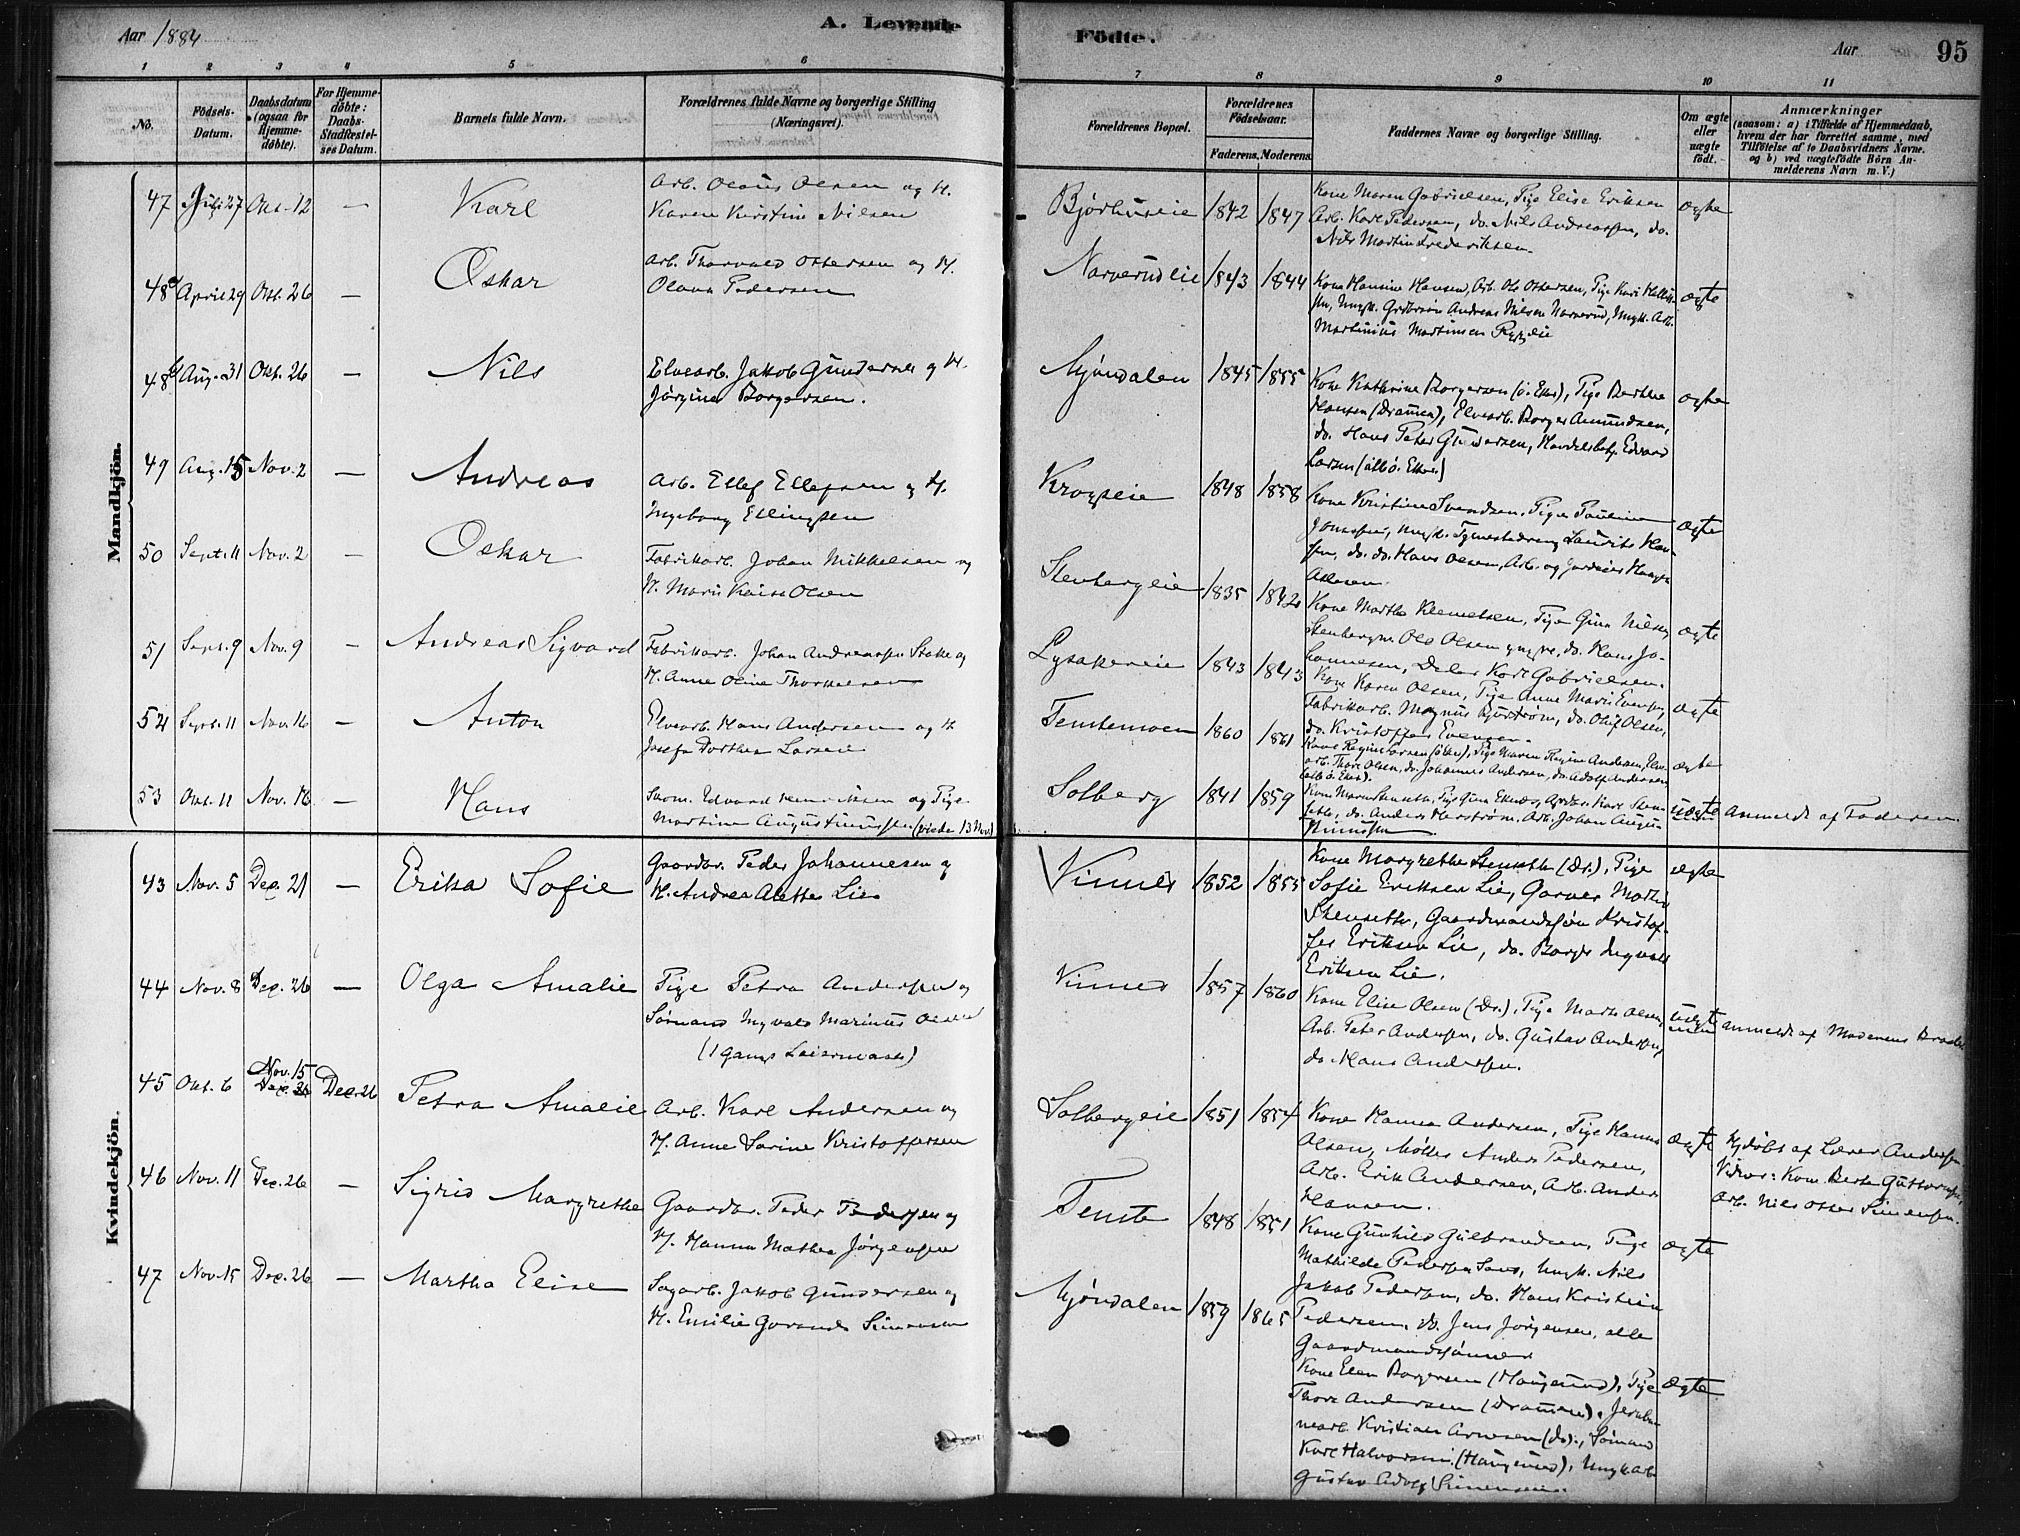 Aar 1884
A. Levende
Födte.
Aar
95
1 2 3 4 5 6 7 8 9 10 11
No.
Födsels-
Datum.
Daabsdatum
(ogsaa for
Hjemme-
döbte).
For Hjemme-
döbte:
Daabs-
Stadfæstel-
ses Datum.
Barnets fulde Navn.
Forældrenes fulde Navne og borgerlige Stilling
(Næringsvei).
Forældrenes Bopæl.
Forældrenes
Födselsaar.
Faderens. Moderens.
Faddernes Navne og borgerlige Stilling.
Om ægte
eller
uægte
født.
Anmærkninger
(saasom: a) i Tilfælde af Hjemmedaab,
hvem der har forrettet samme, med
Tilföielse af to Daabsvidners Navne.
og b) ved uægtefödte Börn An-
melderens Navn m. V.)
Mandkjön.
47 Juli 27 Okt. 12 — Karl
Arb. Olaus Olsen og H.
Karen Kirstine Nilsen
Bjørhuseie 1842 1847
Kone Maren Gabrielsen, Pige Elise Eriksen
Arb. Karl Pedersen, do. Nils Andreassen, do.
Nils Martin Frederiksen
ægte
48a April 29 Okt. 26 — Oskar
Arb. Thorvald Ottersen og H.
Olava Pedersen
Narverudeie 1843 1844
Kone Hansine Hansen, Arb. Ole Ottersen, Pige Kari
Andreas Nilsen Narverud, Ungk. Arb.
Martinius Martinsen
ægte
48b Aug. 31 Okt. 26 — Nils
Elvearb. Jakob Gundersen og H.
Jørgine Borgersen.
Mjøndalen 1845 1855
Kone Kathrine Borgersen (ö. Eker), Pige Berthe
Hansen (Drammen), Elvearb. Borger Amundsen,
do. Hans Peter Gundersen, Handelsbetj. Edvard
Larsen (alle ö. Eker.)
ægte
49 Aug. 15 Nov. 2 — Andreas
Arb. Ellef Ellefsen og H.
Ingeborg Ellingsen
Krogseie 1848 1858
Kone Kristine Svendsen, Pige Pauline
Laurits Han-
sen, do. do. Hans Olsen, Arb. og
ægte
50 Sept. 11 Nov. 2 — Oskar
Fabrikarb. Johan Mikkelsen og
H. Maren Olsen
Stenbergeie 1835 1842
Kone Marthe Klemetsen, Pige Gina Nilsen
Ole Olsen do. Hans Jo-
hannesen, Karl Gabrielsen.
ægte
51 Sept. 9 Nov. 9 — Andreas Sigvard
Fabrikarb. Johan Andreassen og
H. Anne Oline Thorkelsen
Lysakereie 1843 1843
Kone Karen Olsen, Pige Anne Marie Evensen,
Fabrikarb. Magnus do. Oluf Olsen,
do. Kristoffer Evensen.
ægte
52 Sept. 11 Nov. 16 — Anton
Elvearb. Hans Andersen og H.
Josefa Dorthea Larsen
Temtemoen 1860 1861
Kone Regine Larsen (Eker), Pige Maren Regine Andersen, Elve-
arb. Thore Olsen, do. Johannes Andersen, do. Adolf Andersen
(alle ö. Eker).
ægte
53 Okt. 11 Nov. 16 — Hans
Skom. Edvard Henriksen og Pige
Martine Augustinussen (viede 13 Nov.)
Solberg 1841 1859
Karl Sten-
seth, do. Anders Arb. Johan Augus-
tinussen
uægte
Anmeldt af Faderen.
Kvindekjön.
43 Nov. 5 Dec. 21 — Erika Sofie
Gaardbr. Peder Johannesen og
H. Andrea Alette Lie
Vinnes 1852 1855
Kone Margrethe Stenseth (Dr.), Pige
Sofie Eriksen Lie, Garver Martin
Stenseth, Gaardmandssøn Kristof-
fer Eriksen Lie, do. Borger Ingvald
Eriksen Lie.
ægte
44 Nov. 8 Dec. 26 — Olga Amalie
Pige Petra Andersen og
Sømand Ingvald Marinius Olsen
(1 Gangs Leiermaal)
Vinnes 1857 1860
Kone Elise Olsen (Dr.), Pige Marte Olsen,
Arb. Peter Andersen, do. Gustav Andersen,
do. Hans Andersen.
uægte
Anmeldt af Moderens Broder
45 Okt. 6 Nov. 15 Dec. 26 Dec. 26 Petra Amalie
Arb. Karl Andersen og
H. Anne Sørine Kristoffersen
Solbergeie 1851 1854
Kone Hanna Andersen, Pige Hanna
Olsen, Møller Anders Pedersen,
Arb. Erik Andersen, Arb. Anders
Hansen.
ægte
Hjdøbt af Lærer Andersen.
Vidner: Kone Berte Guttormsen,
Arb. Nils Otter Simensen.
46 Nov. 11 Dec. 26 — Sigrid Margrethe
Gaardbr. Peder Pedersen og
H. Hanna Mathea Jørgensen
Temte 1848 1851
Kone Gunhild Gulbrandsen, Pige
Mathilde Pedersen Ungk. Nils
Jakob Pedersen, do. Hans Kristian
Pedersen, do. Jens Jørgensen, alle
Gaardmandssønner
ægte
47 Nov. 15 Dec. 26 — Martha Elise
Sagarb. Jakob Gundersen og
H. Emilie Simensen
Mjøndalen 1859 1865
Kone Elen Borgersen (Haugsund), Pige
Thora Andersen (Drammen), Jernba-
nearb. Kristian Arnesen (do)., Sømand
Karl Halvorsen (Haugsund), Ungk. Arb.
Gustav Adolf Simensen.
ægte